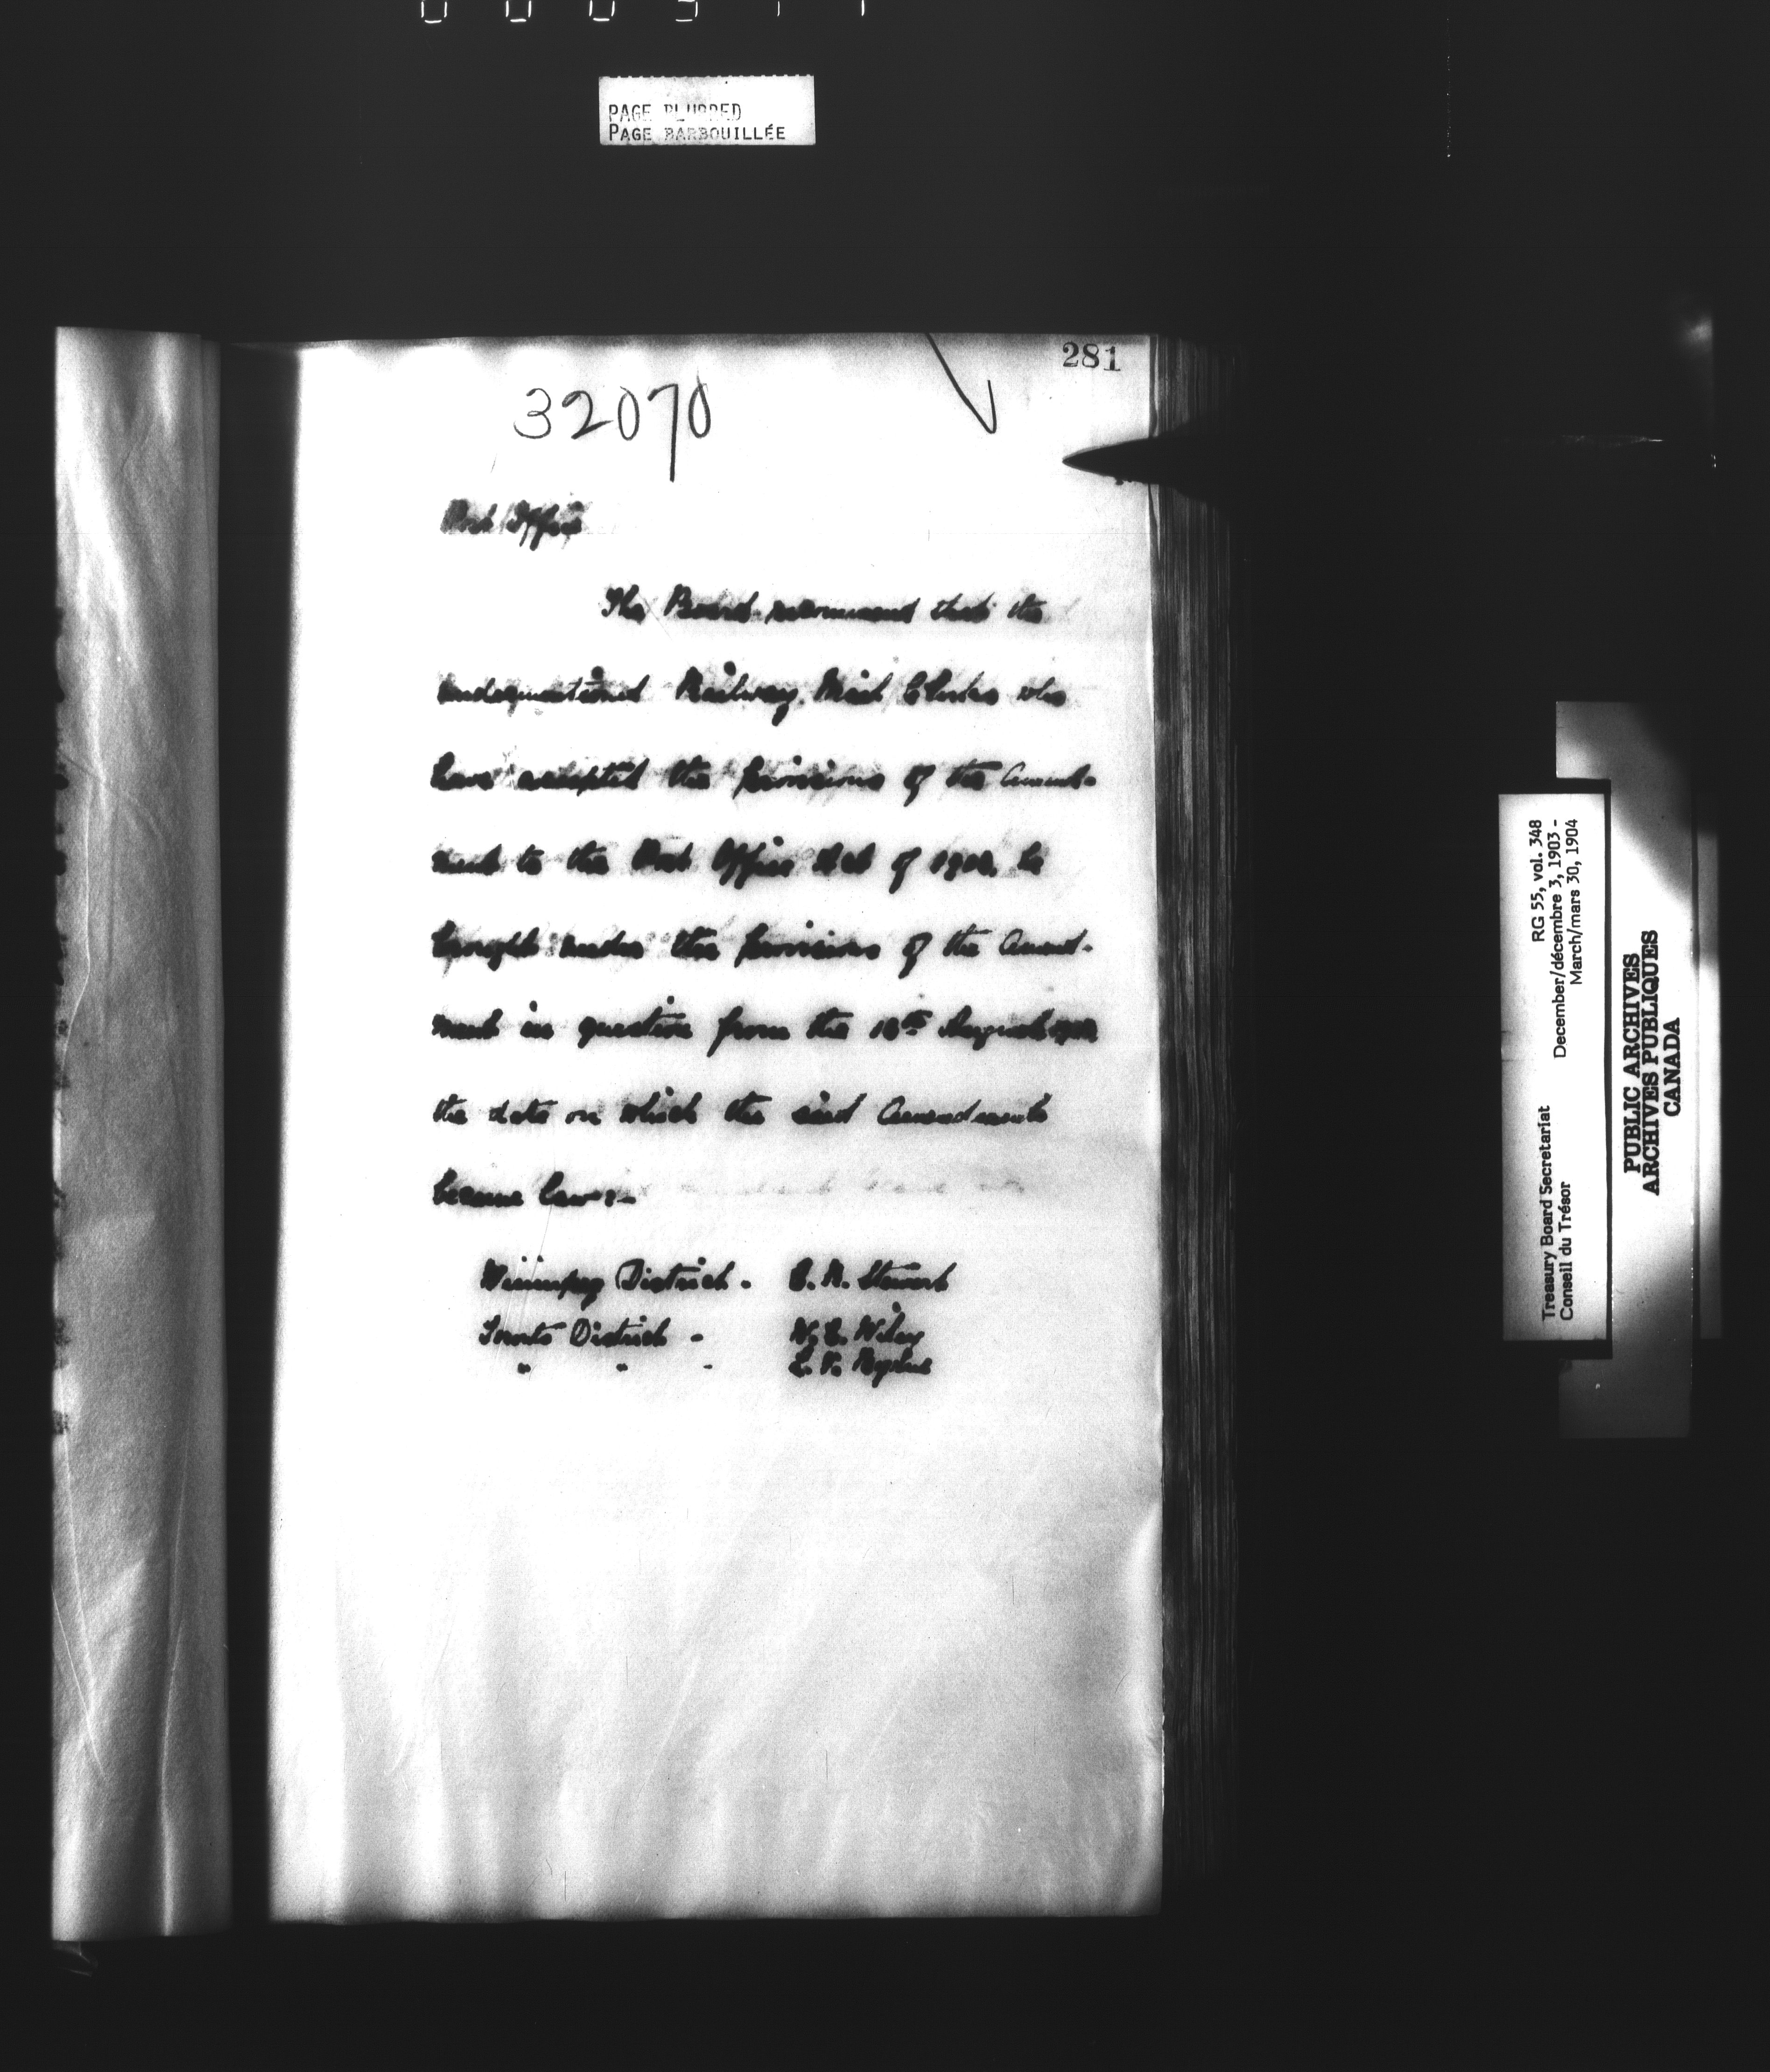 PAGE BLURRED
PAGE BARBOUILLÉE
281
32070
Post Office
The Board recommend that the
undermentioned Railway Mail Clerks who
have accepted the provisions of the Amend-
ment to the Post Office Act of 1903, be
brought under the provisions of the Amend-
ment in question from the August 1903
the date on which the said Amendment
became law:-
Winnipeg District - Stewart
Toronto District - Wiley
" " -
RG 55, vol. 348
December/décembre 3, 1903 -
March/mars 30, 1904
Treasury Board Secretariat
Conseil du Trésor
PUBLIC ARCHIVES
ARCHIVES PUBLIQUES
CANADA